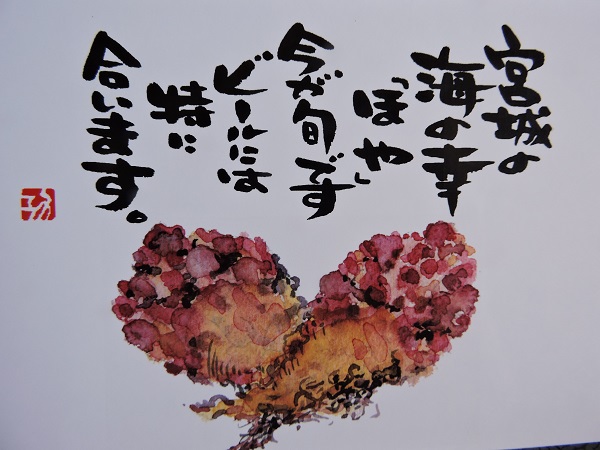 宮城の
海の幸
「ほや」
今が旬です
ビールには
特に
合います。